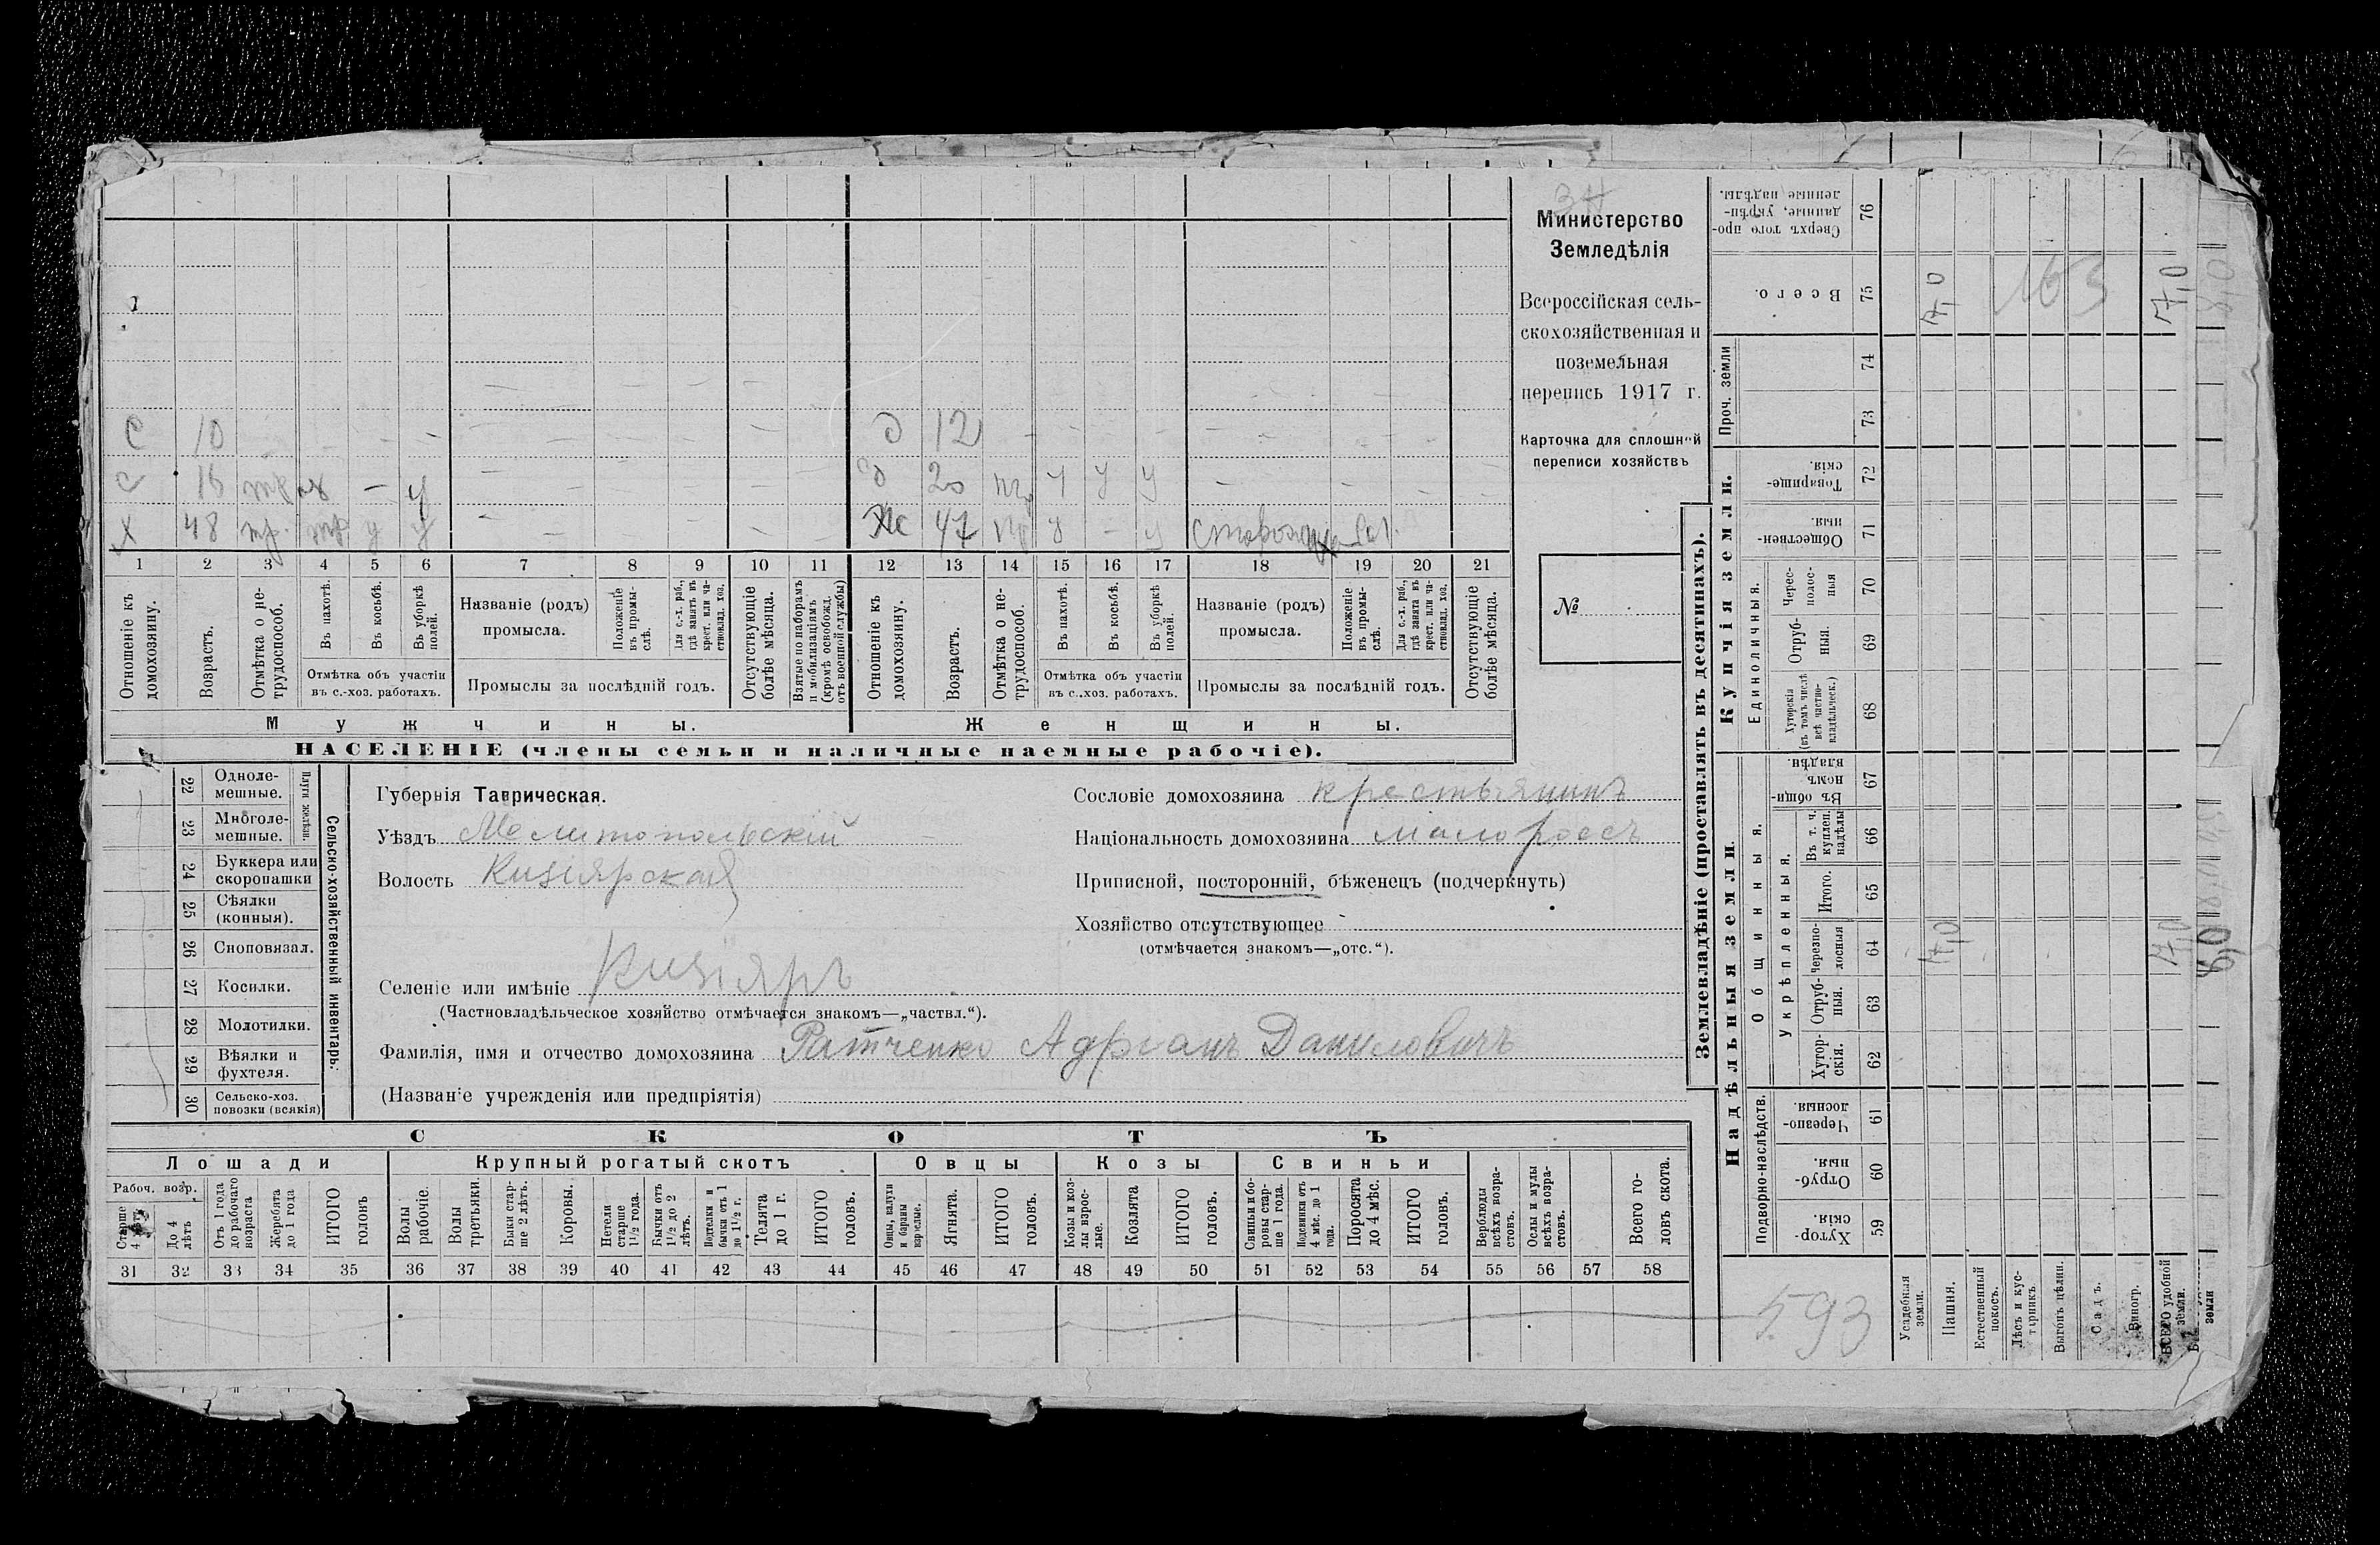 Министерство
Земледѣлія
Всероссійская сель-
скохозяйственная и
поземельная
перепись 1917 г.
Карточка для сплошной
переписи хозяйствъ
№
С 10 Д 12
С 15 Д 20 у у у
Х 48 тр. у у Ж 47 у - у
1 2 3 4 5 6 7 8 9 10 11 12 13 14 15 16 17 18 19 20 21
Отношеніе къ домохозяину.
Возрастъ.
Отмѣтка о не-трудоспособ.
Въ пахотѣ.
Въ косьбѣ.
Въ уборкѣ полей.
Отмѣтка объ участіи
въ с.-хоз. работахъ.
Названіе (родъ)
промысла.
Положеніе въ промы-слѣ.
Для с.-х. раб., гдѣ занятъ въ крест. или ча-стновлад. хоз.
Промыслы за послѣдній годъ.
Отсутствующіе болѣе мѣсяца.
Взятые по наборамъ и мобилизаціямъ (кромѣ освобожд. отъ военной службы)
Отношеніе къ домохозяину.
Возрастъ.
Отмѣтка о не-трудоспособ.
Въ пахотѣ.
Въ косьбѣ.
Въ уборкѣ полей.
Отмѣтка объ участіи
въ с.-хоз. работахъ.
Названіе (родъ)
промысла.
Положеніе въ промы-слѣ.
Для с.-х. раб., гдѣ занята въ крест. или ча-стновлад. хоз.
Промыслы за послѣдній годъ.
Отсутствующіе болѣе мѣсяца.
Мужчины.
Женщины.
НАСЕЛЕНІЕ (члены семьи и наличные наемные рабочіе).
22 Одноле-мешные.
23 Многоле-мешные.
Плуги желѣзн.
24 Буккера или скоропашки
25 Сѣялки (конныя).
26 Сноповязал.
27 Косилки.
28 Молотилки.
29 Вѣялки и фухтеля.
30 Сельско-хоз. повозки (всякія)
Сельско-хозяйственный инвентарь:
Губернія Таврическая.
Уѣздъ Мелитопольскій
Волость Кизіярская
Сословіе домохозяина крестьянинъ
Національность домохозяина малороссъ
Приписной, посторонній, бѣженецъ (подчеркнуть)
Хозяйство отсутствующее
(отмѣчается знакомъ—„отс.“).
Селеніе или имѣніе Кизіяръ
(Частновладѣльческое хозяйство отмѣчается знакомъ—„частвл.“).
Фамилія, имя и отчество домохозяина Ратченко Адріанъ Даниловичъ
(Названіе учрежденія или предпріятія)
СКОТЪ
Лошади
Крупный рогатый скотъ
Овцы
Козы
Свиньи
Рабоч. возр.
Старше 4 лѣтъ
До 4 лѣтъ
Отъ 1 года до рабочаго возраста
Жеребята до 1 года
ИТОГО головъ
Волы рабочіе.
Волы третьяки.
Быки стар-ше 2 лѣтъ.
Коровы.
Нетели старше 1½ года.
Бычки отъ 1½ до 2 лѣтъ.
Подтелки и бычки отъ 1 до 1½ г.
Телята до 1 г.
ИТОГО головъ.
Овцы, валухи и бараны взрослые.
Ягнята.
ИТОГО головъ.
Козы и коз-лы взрос-лые.
Козлята
ИТОГО головъ.
Свиньи и бо-ровы стар-ше 1 года.
Подсвинки отъ 4 мѣс. до 1 года.
Поросята до 4 мѣс.
ИТОГО головъ.
Верблюды всѣхъ возра-стовъ.
Ослы и мулы всѣхъ возра-стовъ.
Всего го-ловъ скота.
31 32 33 34 35 36 37 38 39 40 41 42 43 44 45 46 47 48 49 50 51 52 53 54 55 56 57 58
Землевладѣніе (проставлять въ десятинахъ).
Купчія земли.
Надѣльныя земли.
Сверхъ того про-данные, укрѣп-ленные надѣлы. 76
Всего. 75 7,0 163 7,0
Проч. земли 74
73
Товарище-скія. 72
Обществен-ныя. 71
Единоличныя.
Черес-полос-ныя 70
Отруб-ныя. 69
Хуторскія (въ томъ числѣ всѣ частно-владѣльческ.) 68
Общинныя.
Въ общи-номъ владѣн. 67
Укрѣпленныя.
Въ т. ч. куплен. надѣлы 66
Итого. 65
Черезпо-лосныя 64 7,0 7,0
Отруб-ныя. 63
Хутор-скія. 62
Подворно-наслѣдств.
Черезпо-лосныя. 61
Отруб-ныя. 60
Хутор-скія. 59
593
Усадебная земля.
Пашня.
Естественный покосъ.
Лѣсъ и кус-тарникъ.
Выгонъ цѣлин.
Садъ.
Виногр.
ВСЕГО удобной земли.
земли